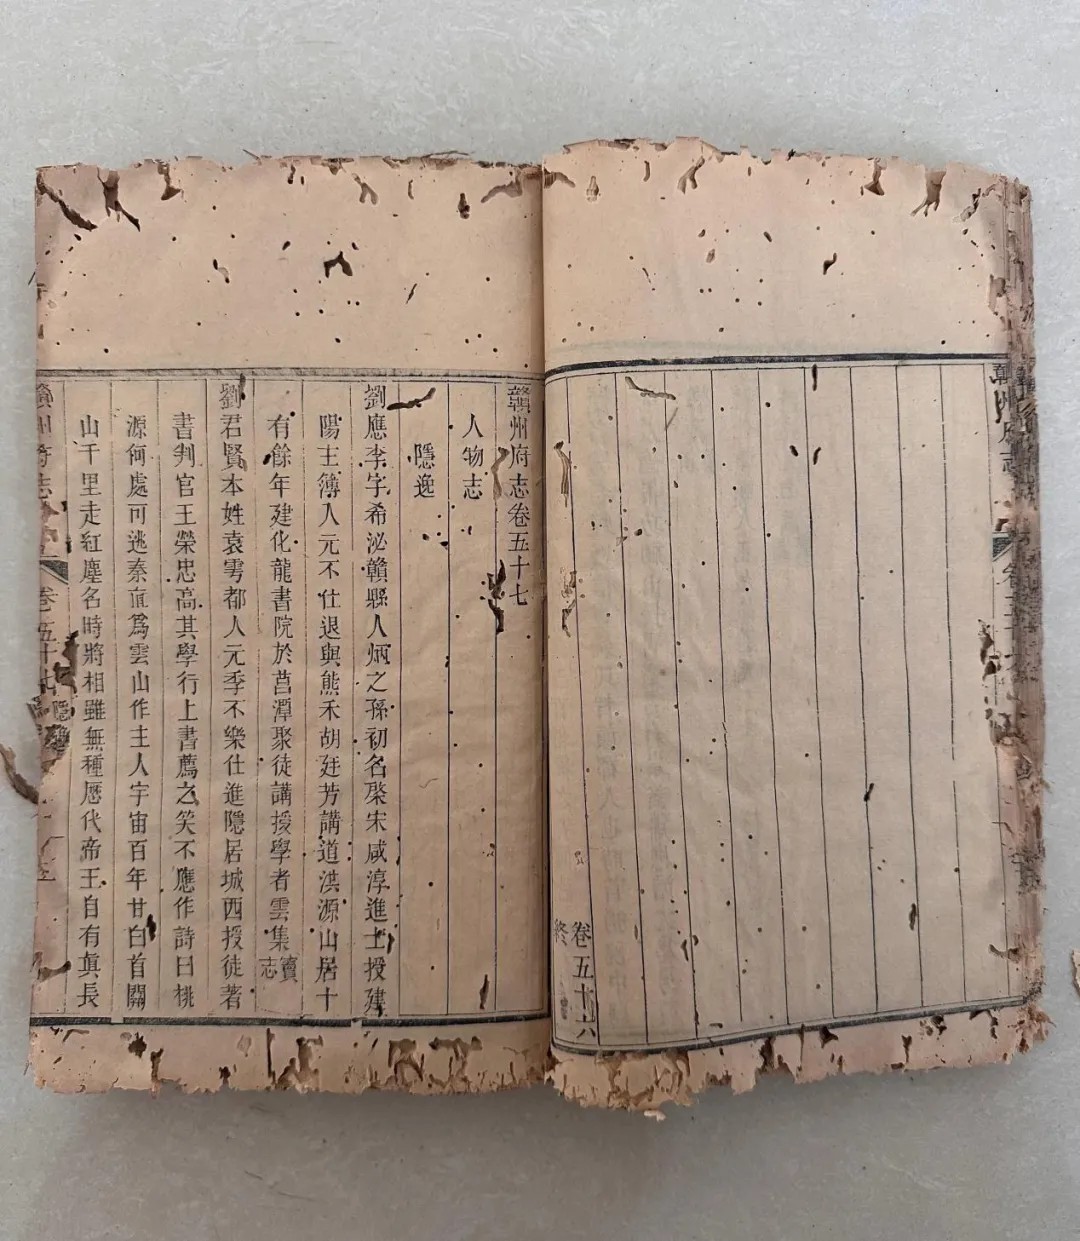 贛州府志
卷五十六
終
贛州府志卷五十七
人物志
隱逸
劉應李字希泌贛縣人炳之孫初名棨宋咸淳進士授建
陽主簿入元不仕退與熊禾胡廷芳講道洪源山居十
有餘年建化龍書院於莒潭聚徒講授學者雲集
竇志
劉君賢本姓袁雩都人元季不樂仕進隱居城西授徒著
書判官王榮忠高其學行上書薦之笑不應作詩曰桃
源何處可逃秦直爲雲山作主人宇宙百年甘白首關
山千里走紅塵名時將相雖無種歷代帝王自有眞長
贛州府志
卷五十七
隱逸